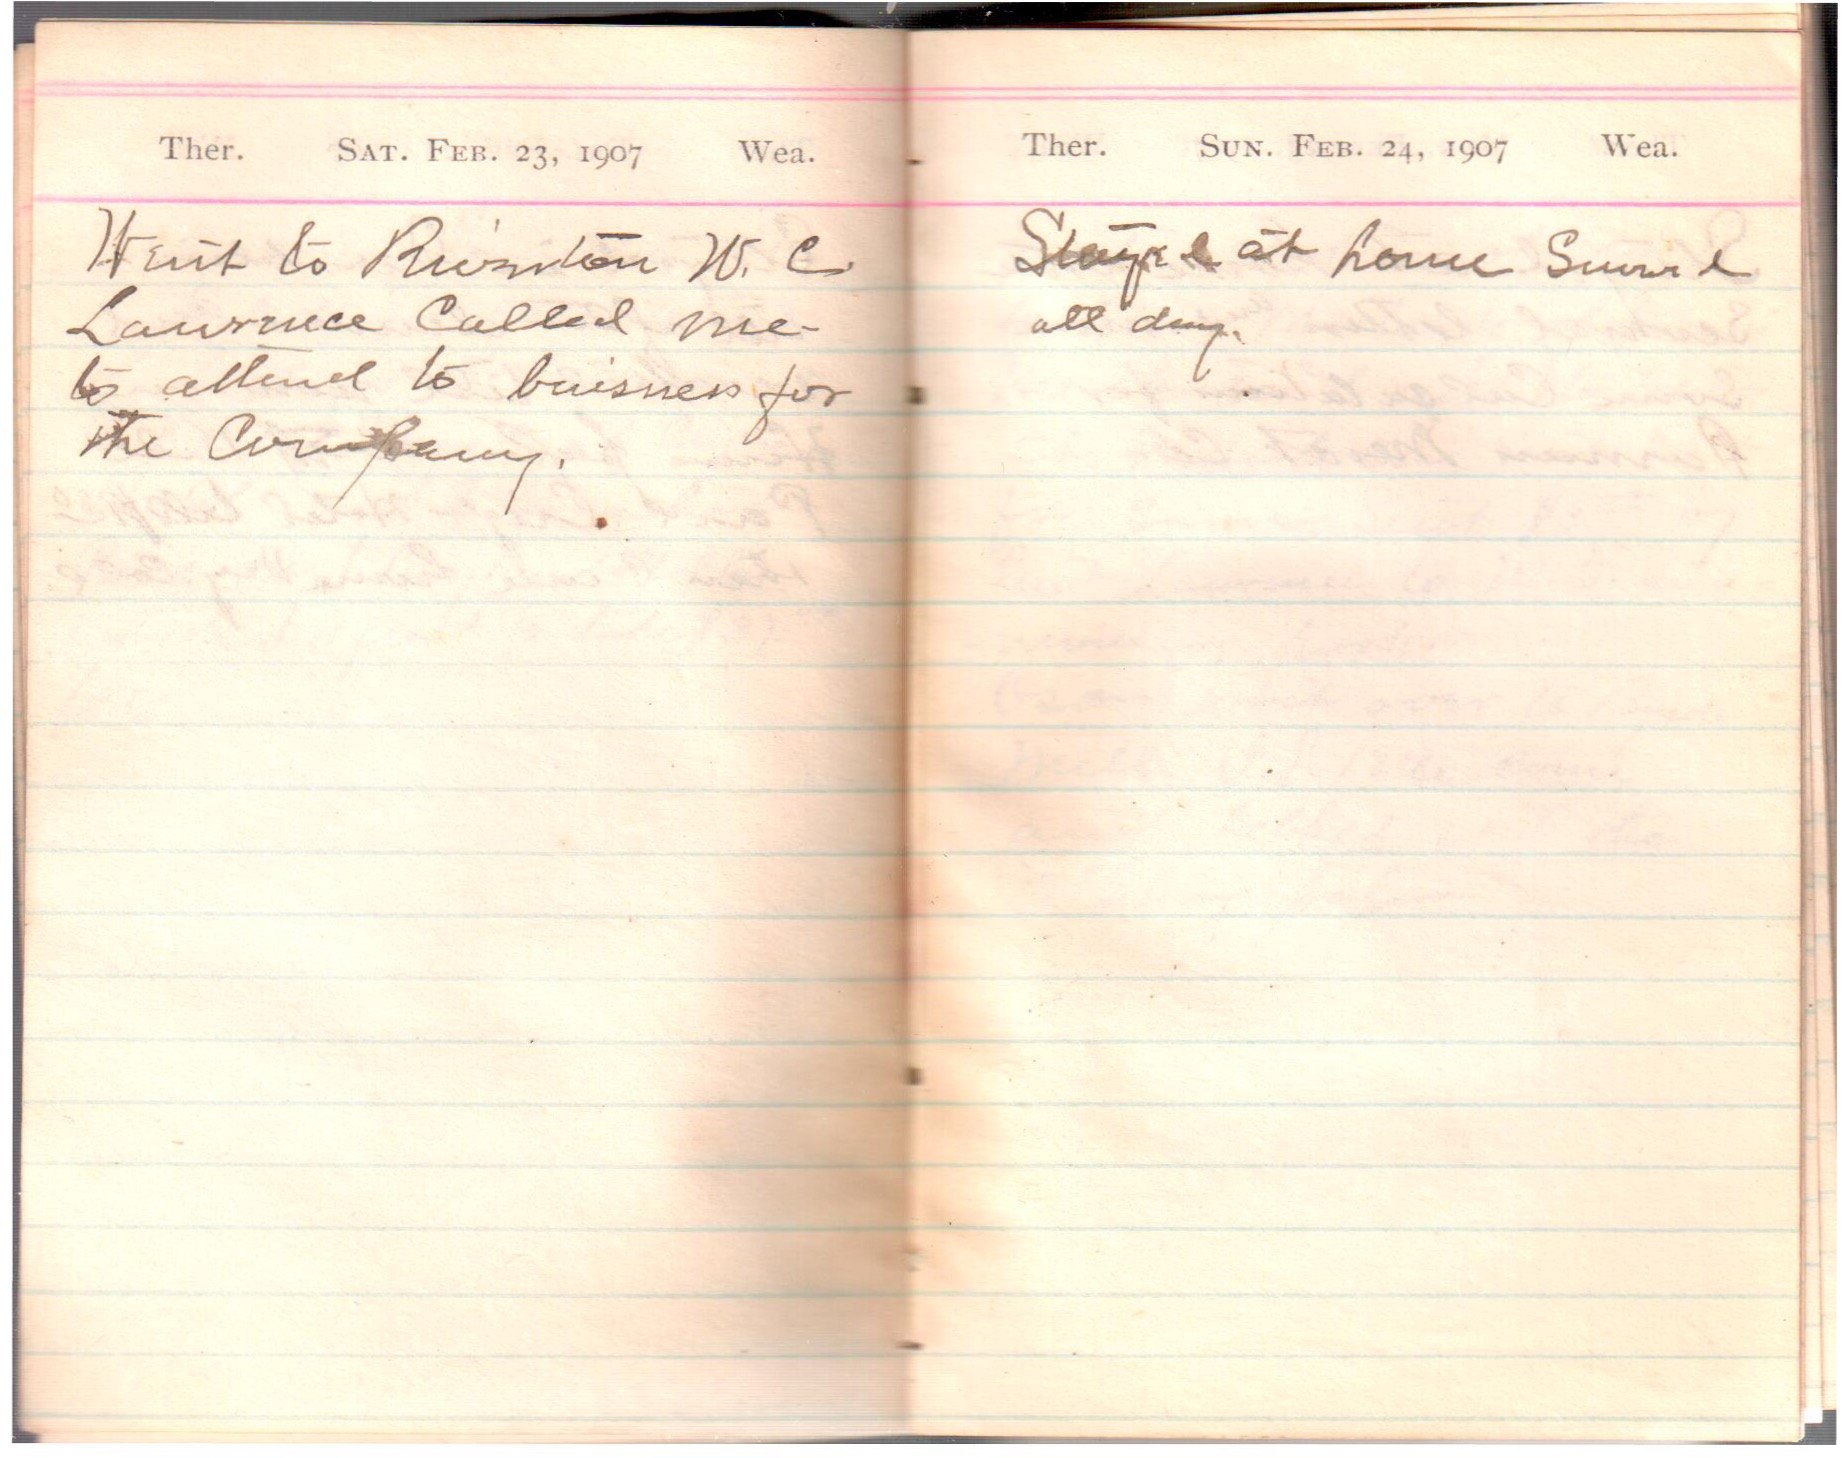 Ther. SAT. FEB. 23, 1907 Wea.
Went to Riverton W. C.
Lawrence Called me
to attend to buisness for
the Company.
Ther. SUN. FEB. 24, 1907 Wea.
Stayed at home
all day.